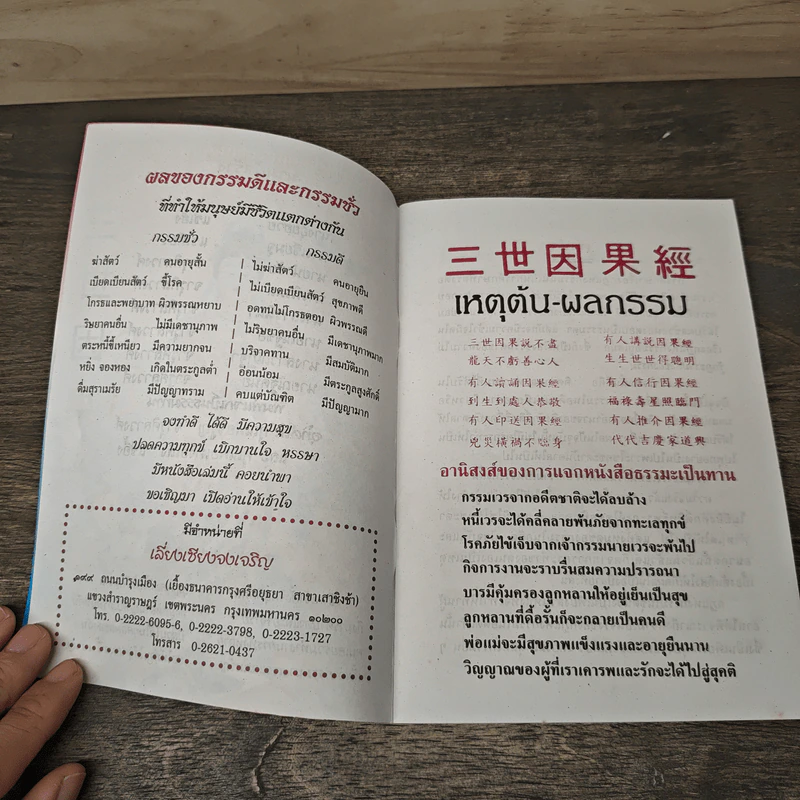 ผลของกรรมดีและกรรมชั่ว
ที่ทำให้มนุษย์มีชีวิตแตกต่างกัน
กรรมชั่ว กรรมดี
ฆ่าสัตว์ คนอายุสั้น | ไม่ฆ่าสัตว์ คนอายุยืน
เบียดเบียนสัตว์ ขี้โรค | ไม่เบียดเบียนสัตว์ สุขภาพดี
โกรธและพยาบาท ผิวพรรณหยาบ | อดทนไม่โกรธตอบ ผิวพรรณดี
ริษยาคนอื่น ไม่มีเดชานุภาพ | ไม่ริษยาคนอื่น มีเดชานุภาพมาก
ตระหนี้ขี้เหนียว มีความยากจน | บริจาคทาน มีสมบัติมาก
หยิ่ง จองหอง เกิดในตระกูลต่ำ | อ่อนน้อม มีตระกูลสูงศักดิ์
ดื่มสุราเมรัย มีปัญญาทราม | คบแต่บัณฑิต มีปัญญามาก
จงทำดี ได้ดี มีความสุข
ปลดความทุกข์ เบิกบานใจ หรรษา
มีหนังสือเล่มนี้ คอยนำพา
ขอเชิญมา เปิดอ่านให้เข้าใจ
มีจำหน่ายที่
เลี่ยงเซียงจงเจริญ
๑๙๙ ถนนบำรุงเมือง (เยื้องธนาคารกรุงศรีอยุธยา สาขาเสาชิงช้า)
แขวงสำราญราษฎร์ เขตพระนคร กรุงเทพมหานคร ๑๐๒๐๐
โทร. 0-2222-6095-6, 0-2222-3798, 0-2223-1727
โทรสาร 0-2621-0437
三世因果經
เหตุต้น-ผลกรรม
三世因果說不盡 有人講說因果經
龍天不虧善心人 生生世世得聰明
有人讀誦因果經 有人信行因果經
到生到處人恭敬 福祿壽星照臨門
有人印送因果經 有人推介因果經
兇災橫禍不臨身 代代吉慶家道興
อานิสงส์ของการแจกหนังสือธรรมะเป็นทาน
กรรมเวรจากอดีตชาติจะได้ลบล้าง
หนี้เวรจะได้คลี่คลายพ้นภัยจากทะเลทุกข์
โรคภัยไข้เจ็บจากเจ้ากรรมนายเวรจะพ้นไป
กิจการงานจะราบรื่นสมความปรารถนา
บารมีคุ้มครองลูกหลานให้อยู่เย็นเป็นสุข
ลูกหลานที่ดื้อรั้นก็จะกลายเป็นคนดี
พ่อแม่จะมีสุขภาพแข็งแรงและอายุยืนนาน
วิญญาณของผู้ที่เราเคารพและรักจะได้ไปสู่สุคติ